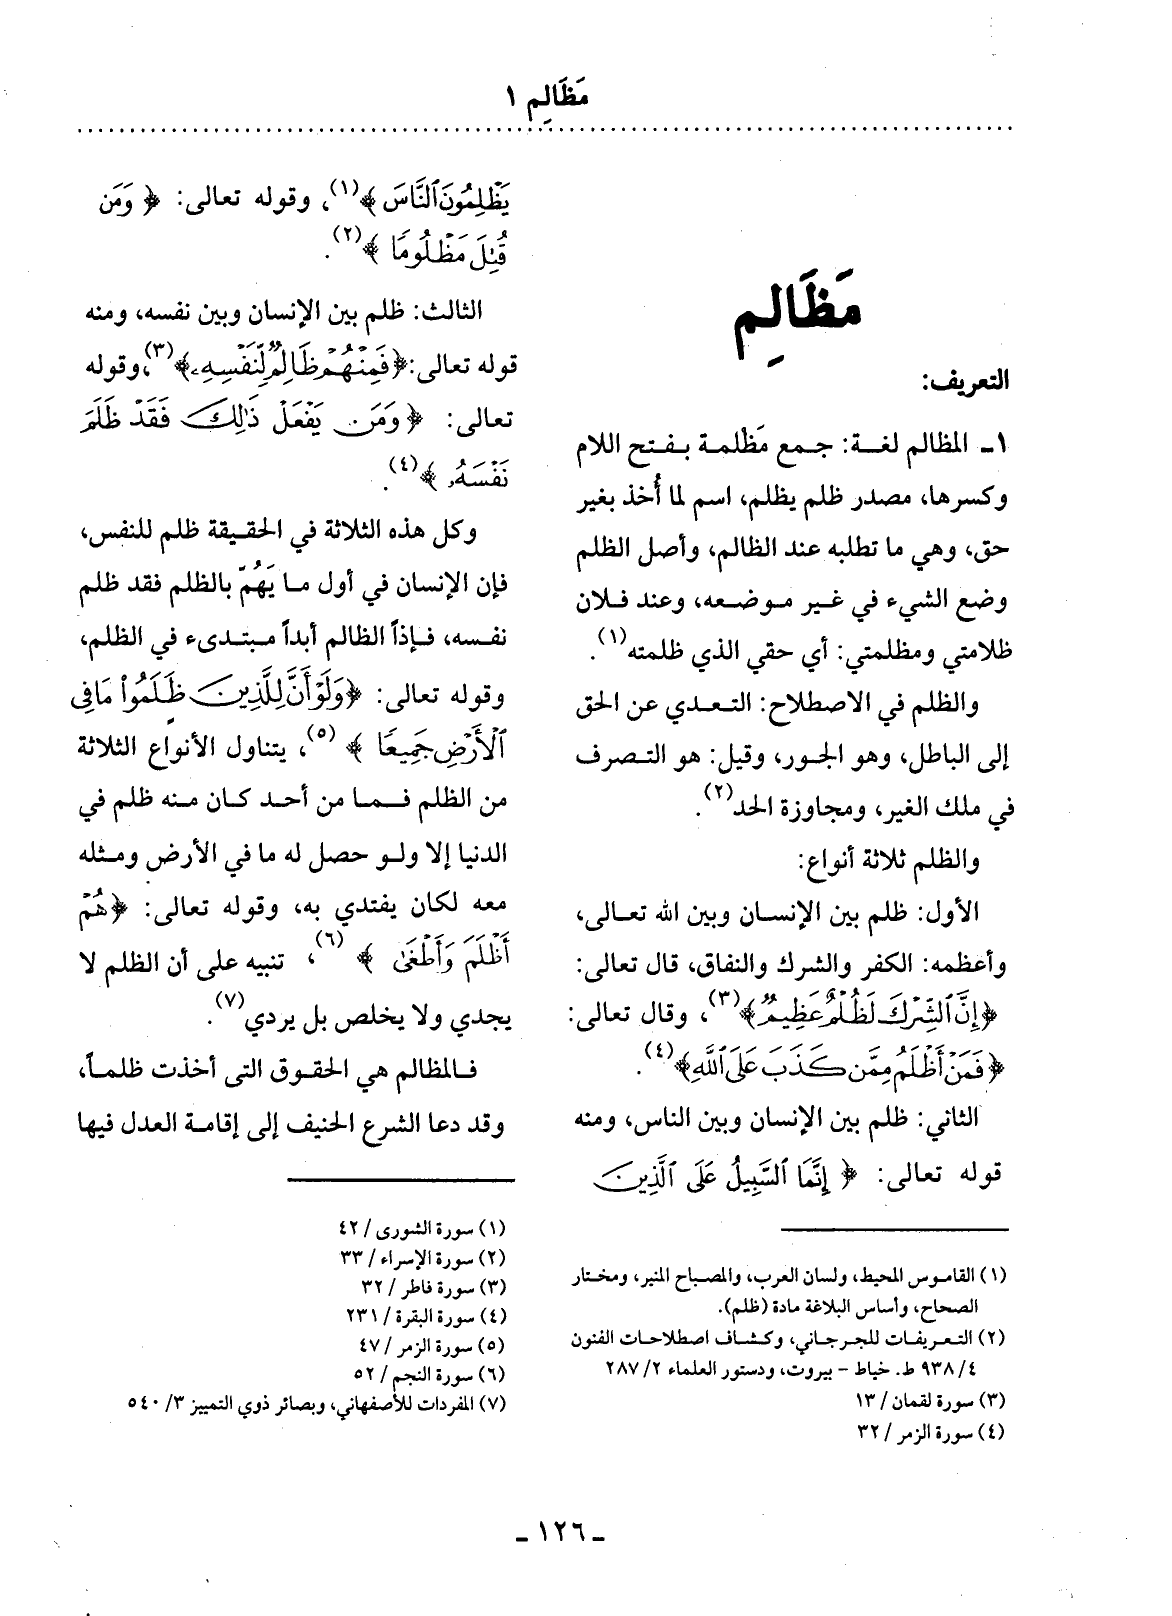 مَظَالِم ١
مَظَالِم
التعريف:
١ـ المظالم لغة: جمع مَظْلمة بفتح اللام
وكسرها، مصدر ظلم يظلم، اسم لما أُخذ بغير
حق، وهي ما تطلبه عند الظالم، وأصل الظلم
وضع الشيء في غير موضعه، وعند فلان
ظلامتي ومظلمتي: أي حقي الذي ظلمته(١).
والظلم في الاصطلاح: التعدي عن الحق
إلى الباطل، وهو الجور، وقيل: هو التصرف
في ملك الغير، ومجاوزة الحد(٢).
والظلم ثلاثة أنواع:
الأول: ظلم بين الإنسان وبين الله تعالى،
وأعظمه: الكفر والشرك والنفاق، قال تعالى:
﴿إِنَّ ٱلشِّرْكَ لَظُلْمٌ عَظِيمٌ﴾(٣)، وقال تعالى:
﴿فَمَنْ أَظْلَمُ مِمَّن كَذَبَ عَلَى ٱللَّهِ﴾(٤).
الثاني: ظلم بين الإنسان وبين الناس، ومنه
قوله تعالى: ﴿إِنَّمَا ٱلسَّبِيلُ عَلَى ٱلَّذِينَ
(١) القاموس المحيط، ولسان العرب، والمصباح المنير، ومختار
الصحاح، وأساس البلاغة مادة (ظلم).
(٢) التعريفات للجرجاني، وكشاف اصطلاحات الفنون
٤/ ٩٣٨ ط. خياط - بيروت، ودستور العلماء ٢/ ٢٨٧
(٣) سورة لقمان / ١٣
(٤) سورة الزمر / ٣٢
يَظْلِمُونَ ٱلنَّاسَ﴾(١)، وقوله تعالى: ﴿وَمَن
قُتِلَ مَظْلُومًا﴾(٢).
الثالث: ظلم بين الإنسان وبين نفسه، ومنه
قوله تعالى: ﴿فَمِنْهُمْ ظَالِمٌ لِّنَفْسِهِۦ﴾(٣)، وقوله
تعالى: ﴿وَمَن يَفْعَلْ ذَٰلِكَ فَقَدْ ظَلَمَ
نَفْسَهُۥ﴾(٤).
وكل هذه الثلاثة في الحقيقة ظلم للنفس،
فإن الإنسان في أول ما يَهُمّ بالظلم فقد ظلم
نفسه، فإذاً الظالم أبداً مبتدىء في الظلم،
وقوله تعالى: ﴿وَلَوْ أَنَّ لِلَّذِينَ ظَلَمُوا۟ مَا فِى
ٱلْأَرْضِ جَمِيعًا﴾(٥)، يتناول الأنواع الثلاثة
من الظلم فما من أحد كان منه ظلم في
الدنيا إلا ولو حصل له ما في الأرض ومثله
معه لكان يفتدي به، وقوله تعالى: ﴿هُمْ
أَظْلَمَ وَأَطْغَىٰ﴾(٦)، تنبيه على أن الظلم لا
يجدي ولا يخلص بل يردي(٧).
فالمظالم هي الحقوق التى أخذت ظلماً،
وقد دعا الشرع الحنيف إلى إقامة العدل فيها
(١) سورة الشورى / ٤٢
(٢) سورة الإسراء / ٣٣
(٣) سورة فاطر / ٣٢
(٤) سورة البقرة / ٢٣١
(٥) سورة الزمر / ٤٧
(٦) سورة النجم / ٥٢
(٧) المفردات للأصفهاني، وبصائر ذوي التمييز ٣/ ٥٤٠
ـ ١٢٦ ـ